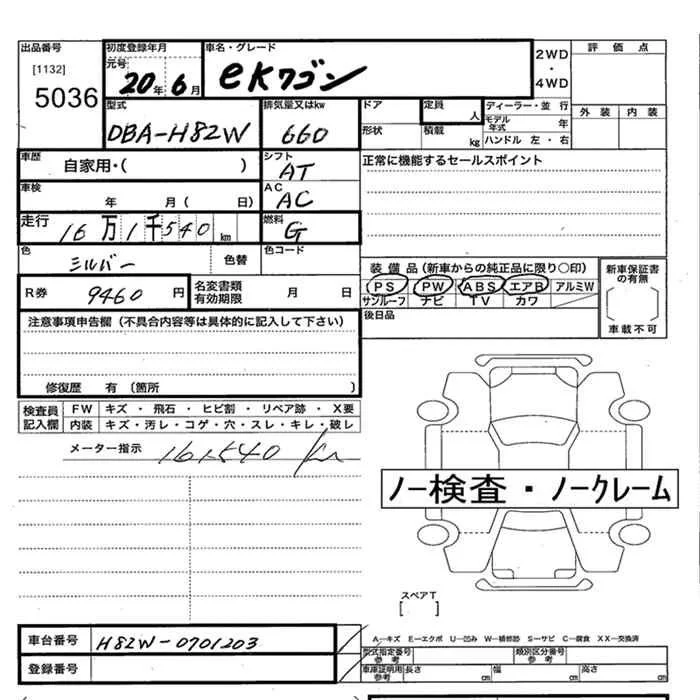 出品番号 [1132] 5036
初度登録年月 元号 20年 6月
車名・グレード eKワゴン
2WD・4WD
評価点
外装 内装
型式 DBA-H82W
排気量又はkw 660
ドア 形状
定員 人
積載 kg
ディーラー・並行
モデル年式 年
ハンドル 左・右
車歴 自家用・( )
シフト AT
正常に機能するセールスポイント
車検 年 月( 日)
AC AC
走行 16万1千540km
燃料 G
色 シルバー 色替
色コード
装備品(新車からの純正品に限り○印)
PS PW ABS エアB アルミW
サンルーフ ナビ TV カワ
新車保証書の有無
車載不可
R券 9460円
名変書類有効期限 月 日
後日品
注意事項申告欄(不具合内容等は具体的に記入して下さい)
修復歴 有(箇所 )
検査員記入欄
FW キズ・飛石・ヒビ割・リペア跡・X要
内装 キズ・汚レ・コゲ・穴・スレ・キレ・破レ
メーター指示 161540 km
ノー検査・ノークレーム
スペアT
[ ]
車台番号 H82W-0701203
A―キズ E―エクボ U―凹み W―補修跡 S―サビ C―腐食 XX―交換済
型式指定番号 参考
類別区分番号 参考
登録番号
車庫証明用参考 長さ cm 幅 cm 高さ cm